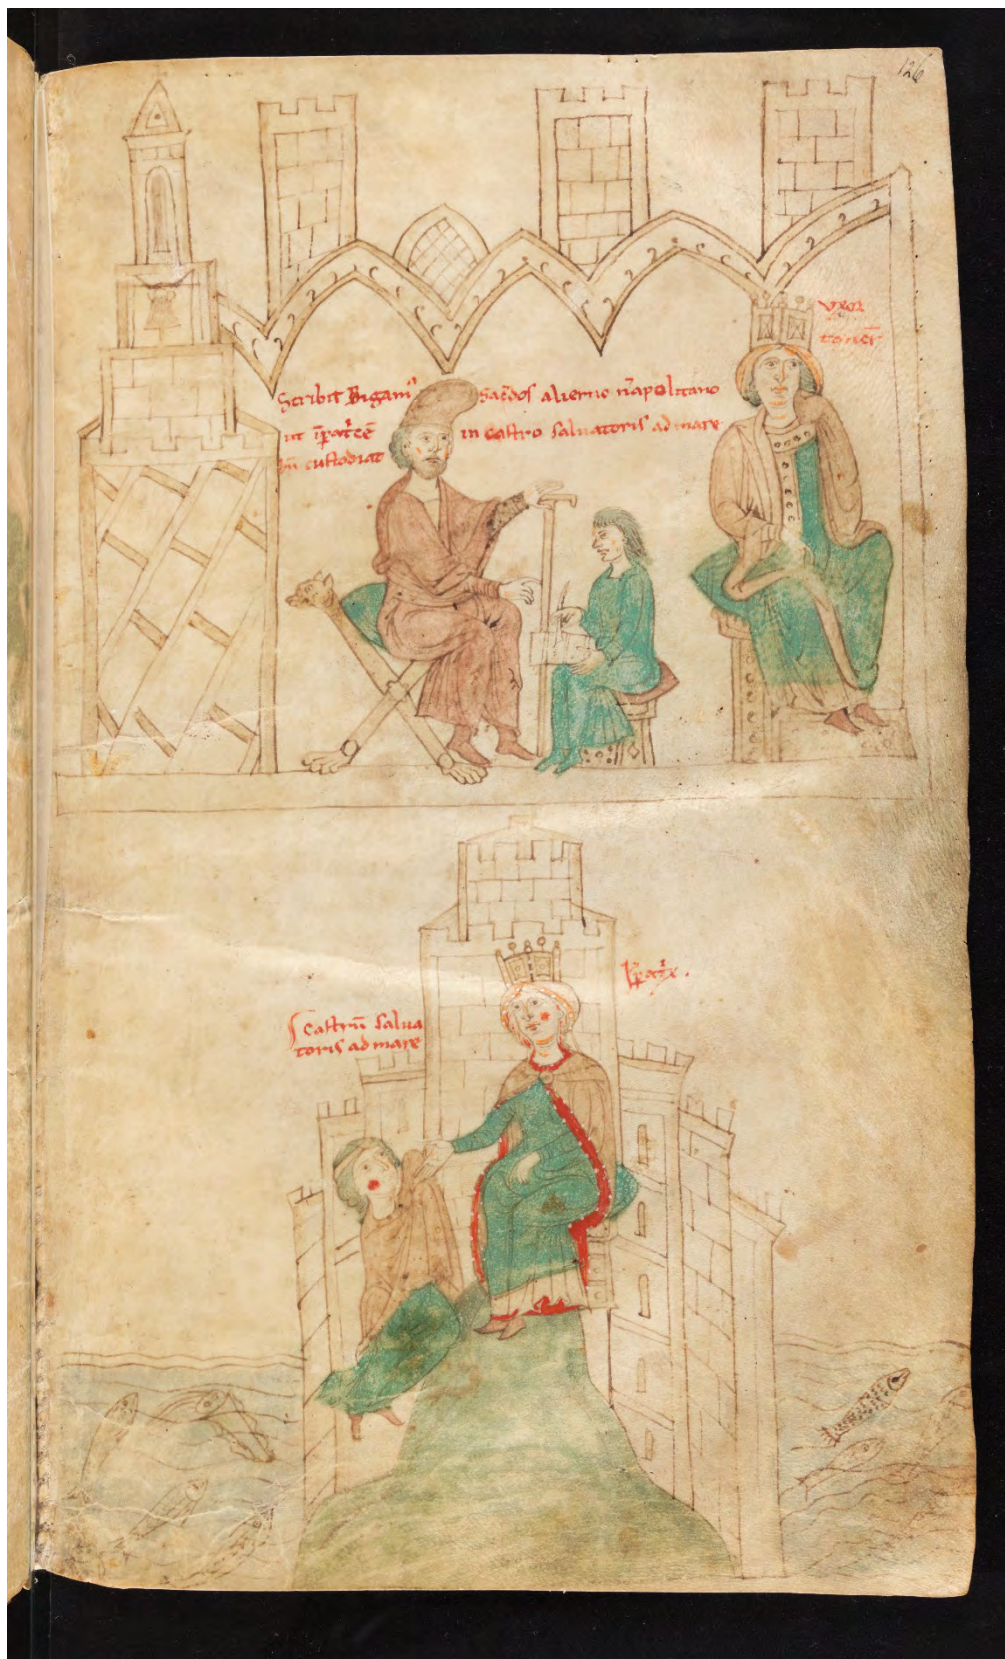 126
Uxor
tancr̄
Scribit Bigam᾿ sac̄dos alierno n̄apolitano
ut īpat͛cē in castro salvatoris ad mare
bn̄ custodiat
īpat͛x.
castrū salva
toris ad mare